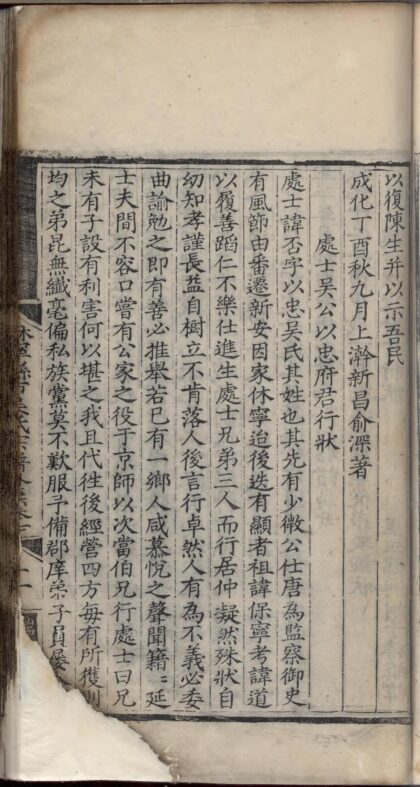 以復陳生并以示吾民
成化丁酉秋九月上澣新昌俞深著
處士吳公以忠府君行狀
處士諱否字以忠吳氏其姓也其先有少微公仕唐為監察御史
有風節由番遷新安因家休寧迨後迭有顯者祖諱保寧考諱道
以履善蹈仁不樂仕進生處士兄弟三人而行居仲凝然殊狀自
幼知孝謹長益自樹立不肯落人後言行卓然人有為不義必委
曲諭勉之即有善必推舉若已有一鄉人咸慕悅之聲聞籍〻延
士夫間不容口嘗有公家之役于京師以次當伯兄行處士曰兄
未有子設有利害何以堪之我且代徃後經營四方每有所獲則
均之弟昆無纖毫偏私族黨莫不歎服予備郡庠弟子員屢